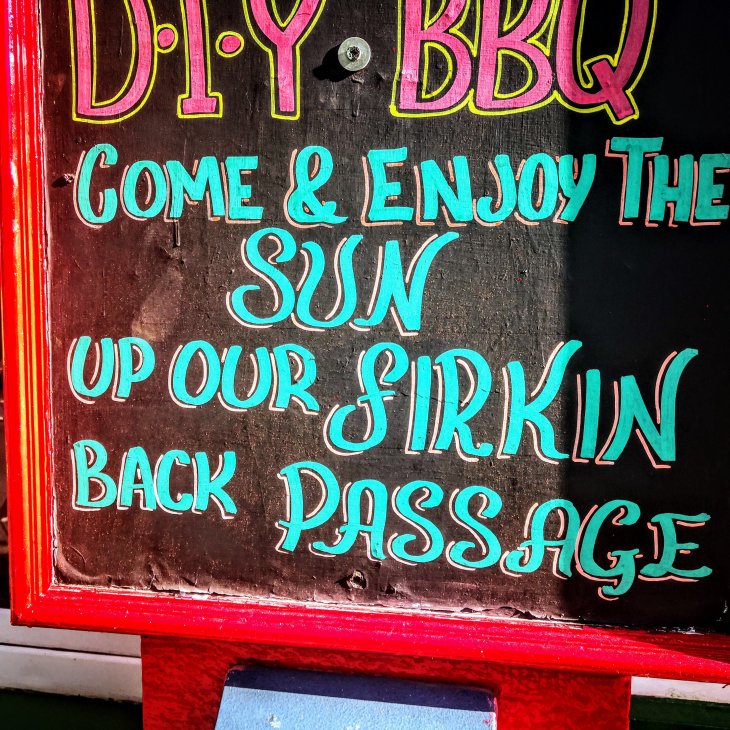 D·I·Y BBQ
COME & ENJOY THE
SUN
UP OUR FIRKIN
BACK PASSAGE